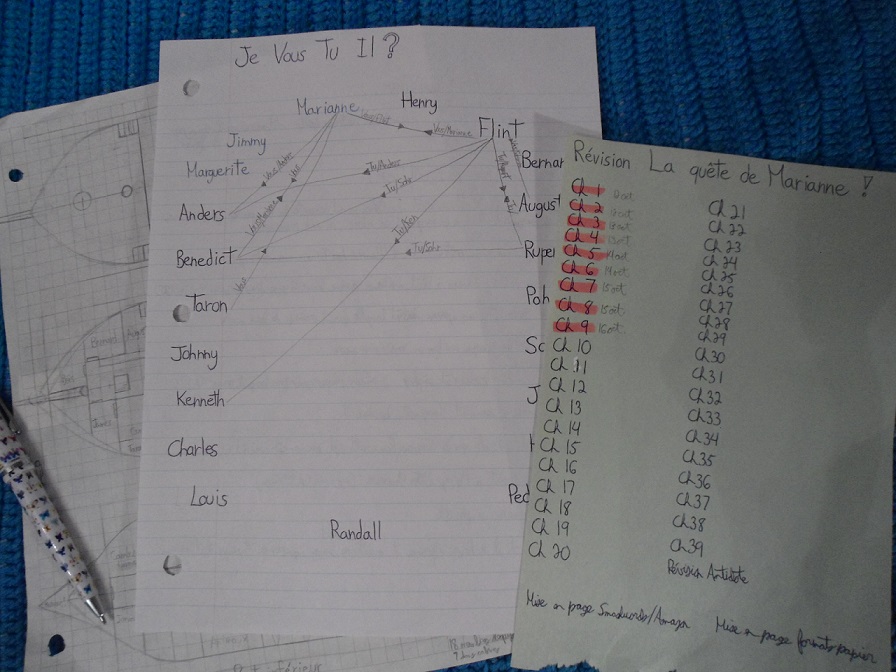 Je Vous Tu Il ?
Marianne
Henry
Flint
Jimmy
Marguerite
Anders
Benedict
Taron
Johnny
Kenneth
Charles
Louis
Randall
Bernar
August
Ruper
Poh
Sc
J
Ped
Vous/Flint
Vous/Marianne
Vous/Anders
Tu/Anders
Vous
Tu/Solz
Tu/Solz
Révision La quête de Marianne !
Ch 1
Ch 2
Ch 3
Ch 4
Ch 5 14 oct
Ch 6 14 oct
Ch 7 15 oct
Ch 8 15 oct
Ch 9 16 oct
Ch 10
Ch 11
Ch 12
Ch 13
Ch 14
Ch 15
Ch 16
Ch 17
Ch 18
Ch 19
Ch 20
Ch 21
Ch 22
Ch 23
Ch 24
Ch 25
Ch 26
Ch 27
Ch 28
Ch 29
Ch 30
Ch 31
Ch 32
Ch 33
Ch 34
Ch 35
Ch 36
Ch 37
Ch 38
Ch 39
Révision Antidote
Mise en page Smashwords/Amazon
Mise en page formats papier